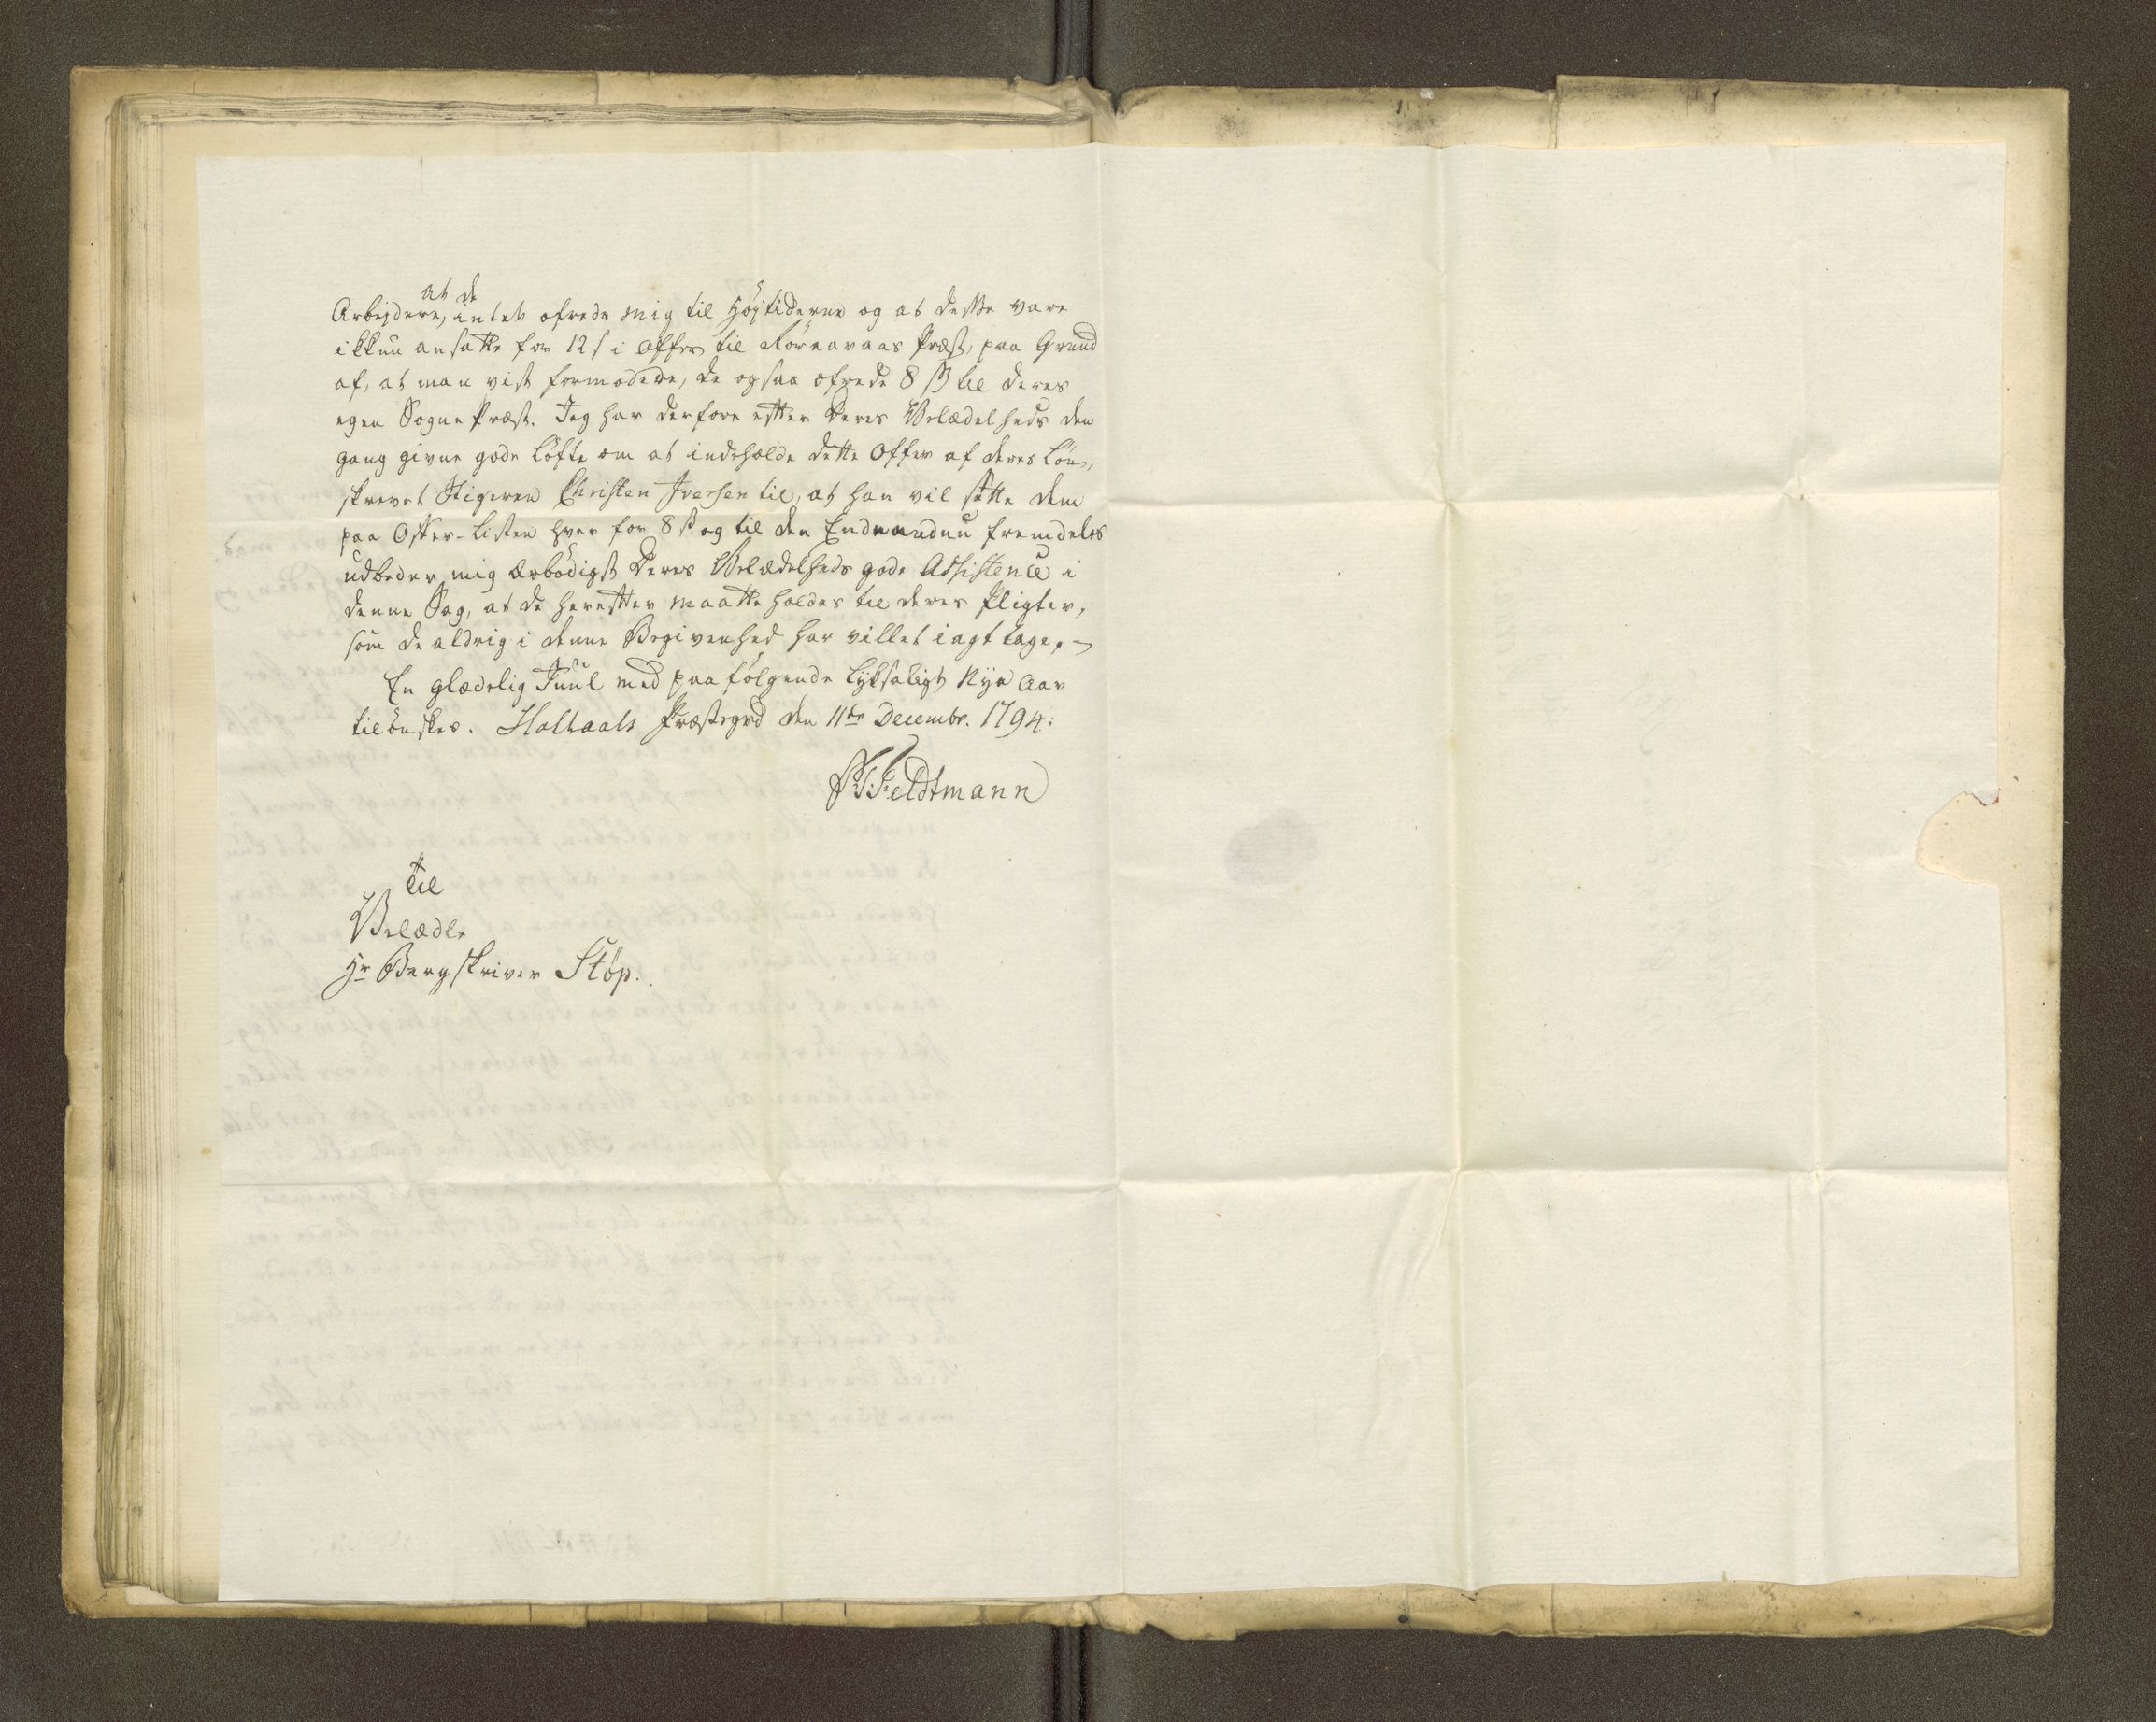 at de
Arbejdere, intet ofrede mig til Højtiderne og at disse vare
ikkun ansatte for 12 s i Offer til Röraaas Præst, paa Grund
af, at man vist formodede, de ogsaa ofrede 8 ß til deres
egen Sogne Præst. Jeg har derfore efter Deres Velædelheds den
gang givne gode Löfte om at indeholde dette Offer af deres Løn,
skrevet Stigeren Christen Iversen til, at han vil sette dem
paa Offer-Listen hver for 8 ß. og til den Ende endnu fremdeles
udbeder mig ærbödigst Deres Velædelheds gode Assistence i
denne Sag, at de herefter maatte holdes til deres Pligter,
som de aldrig i denne Begivenhed har villet iagttage. -
En glædelig Juul med paafølgende lyksaligt Nye Aar
tilönskes. Holtaals Præstegrd den 11te Decembr. 1794.
Feldtmann
Til
Velædle
Hr Bergskriver Støp.